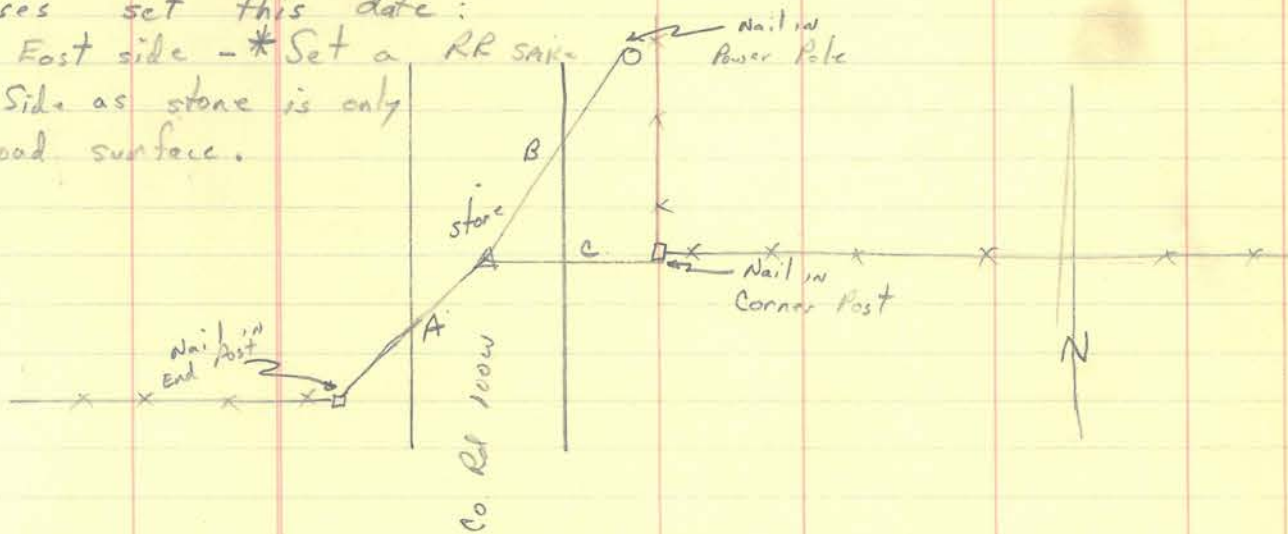 ses set this date:
East side - * Set a RR Spike
Side as stone is only
oad surface.
Nail in
Power Pole
B
stone
C
Nail in
Corner Post
A
Nail in
End Post
Co. Rd 100W
N